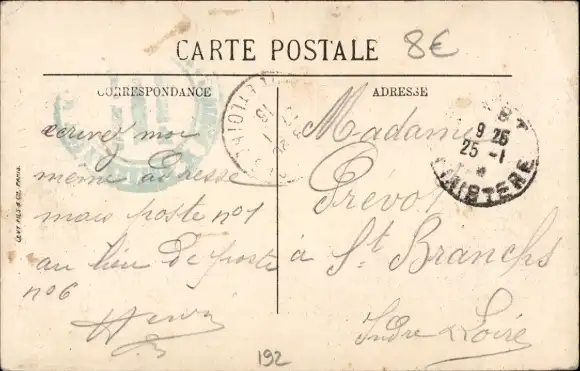 CARTE POSTALE
8€
CORRESPONDANCE
ADRESSE
écrivez moi
même adresse
mais poste n°1
au lieu de poste
n°6
Henri
Madame
Prévot
à St Branchs
Indre & Loire
9 25
25 - 1
*
FINISTERE
LEVY FILS & CIE, PARIS
192